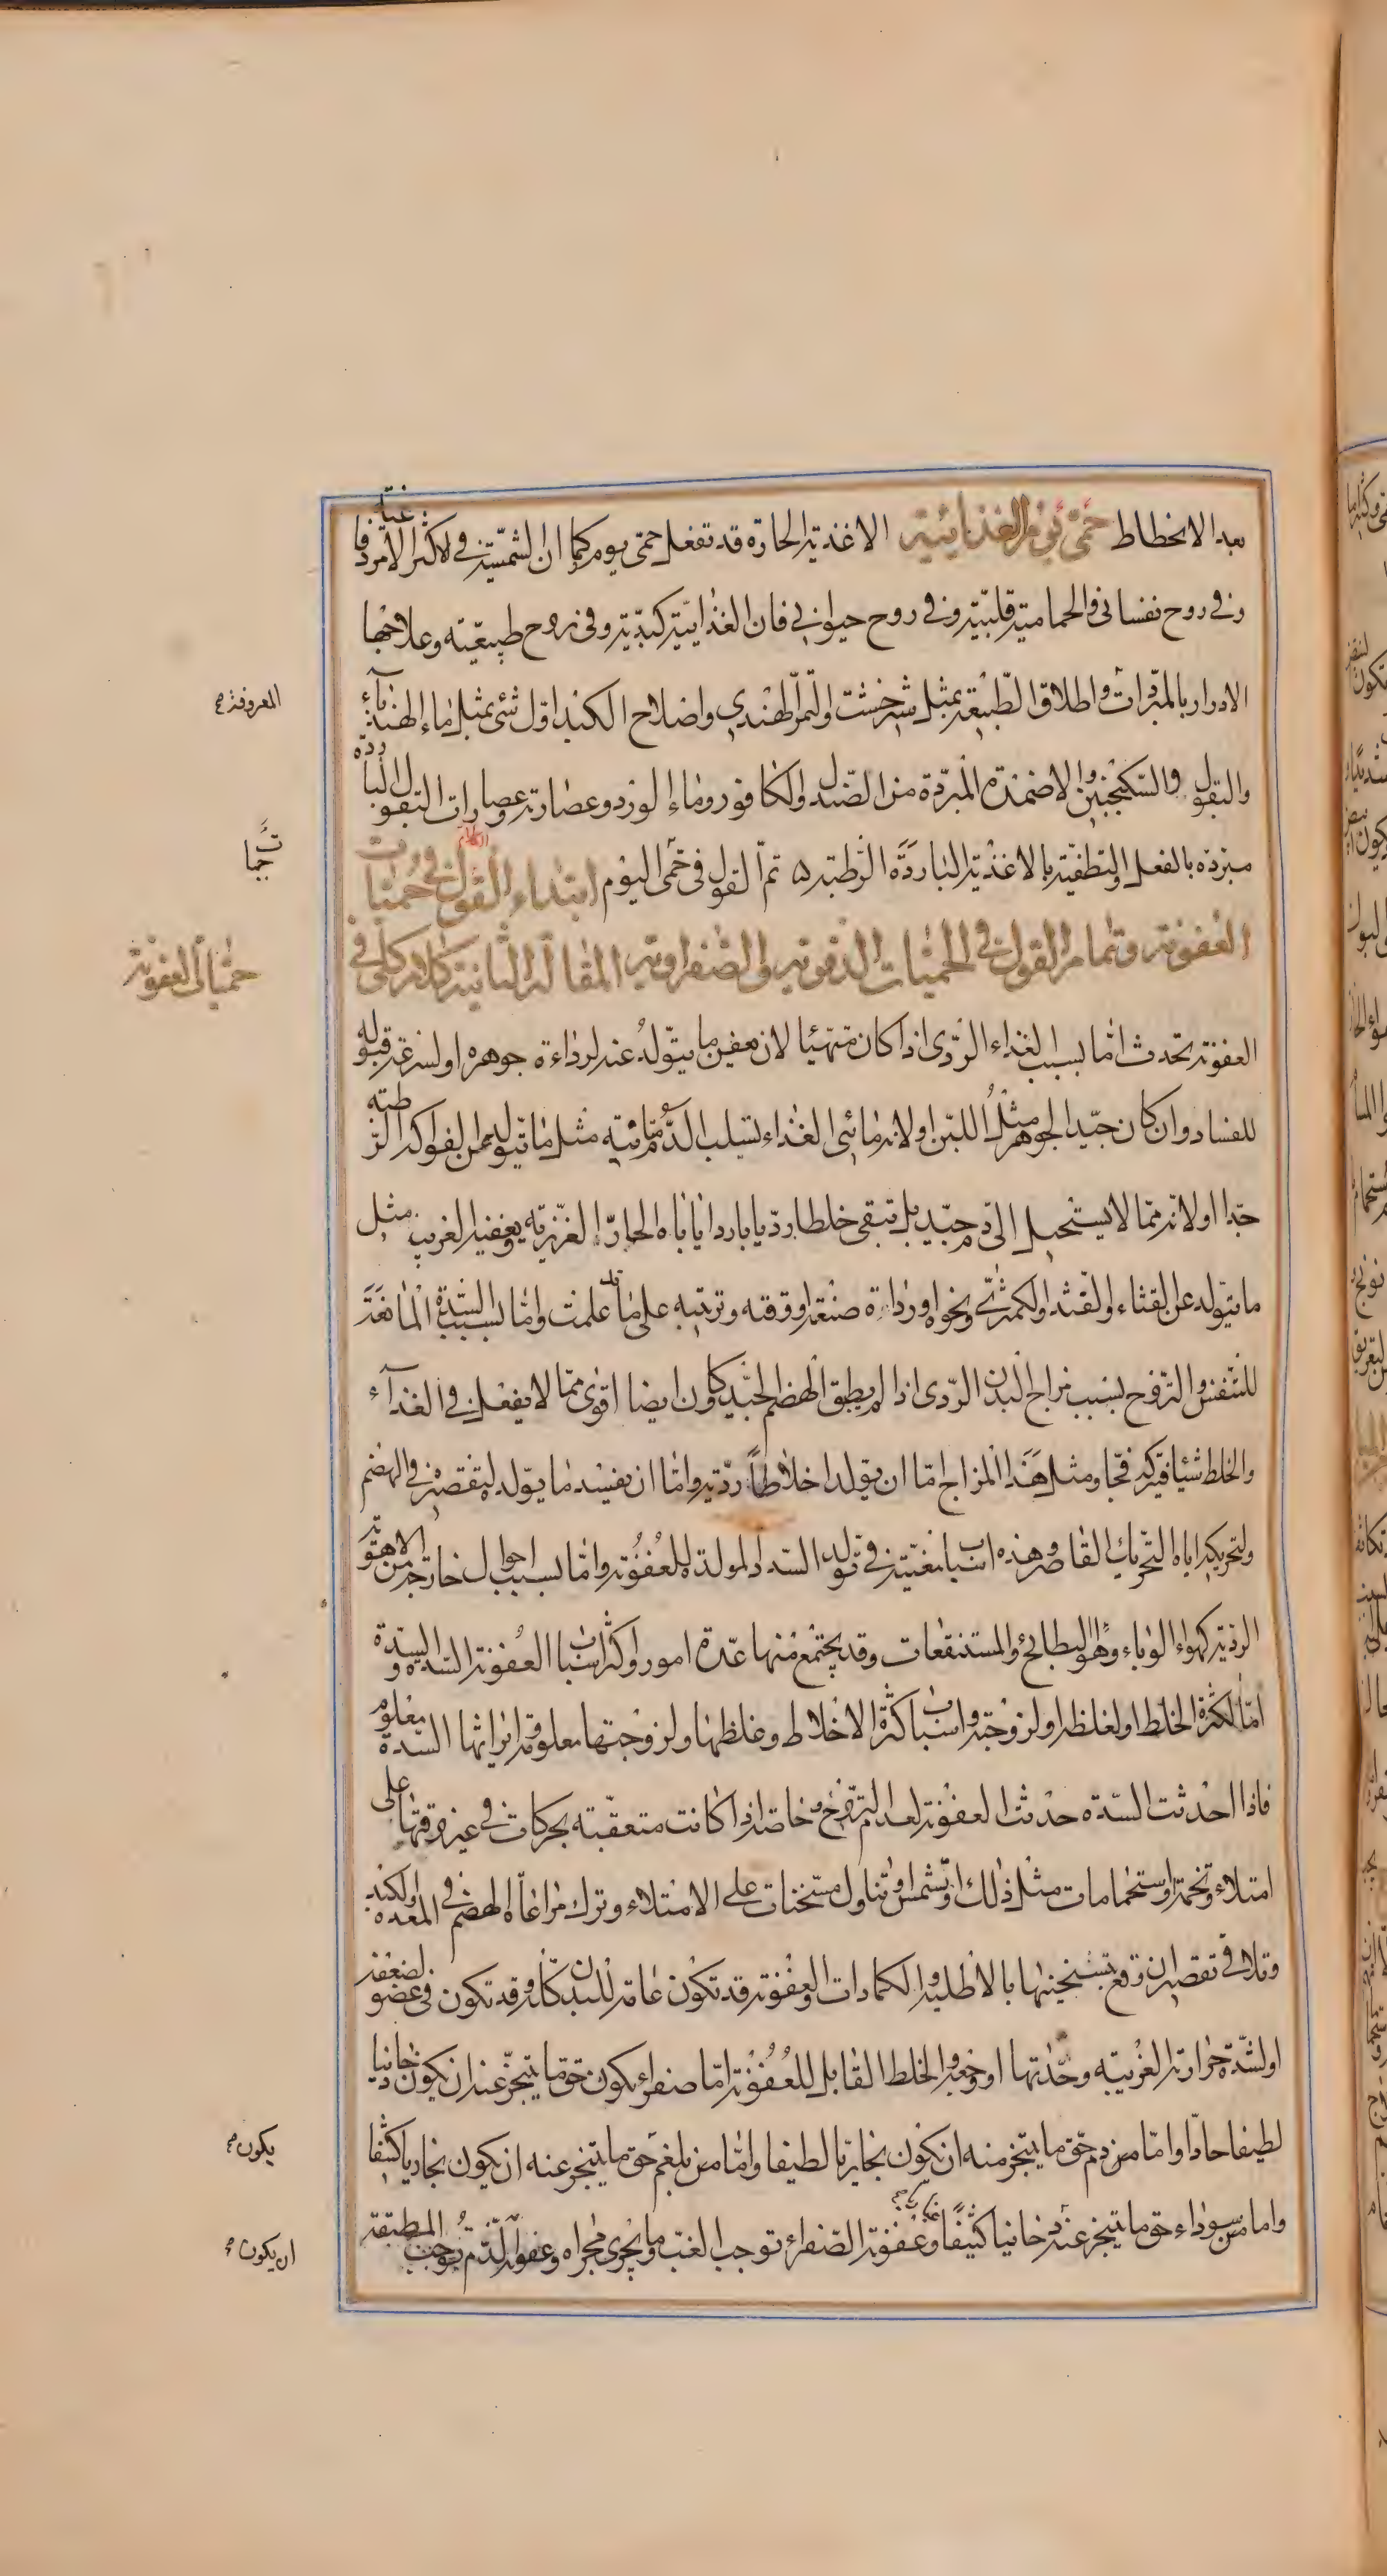 بعد الانحطاط حمى يوم الغذائية الاغذية الحارة قد تفعل حمى يوم كما ان الشمسية في الاكثر الامر دماغية
و في روح نفساني والحمامية قلبية و في روح حيواني فان الغذائية كبدية وفي روح طبيعية وعلاجها
الادرار بالمبردات واطلاق الطبيعة بمثل شيرخشت والتمر الهندي واصلاح الكبد اول شئ بمثل ماء الهندباء
والبقول والسكنجبين والاضمدة المبردة من الصندل والكافور وماء الورد وعصارته وعصارات البقول الباردة
مبردة بالفعل والتطفية بالاغذية الباردة الرطبة ۵ تم القول في حمى اليوم ابتداء القول في حميات
العفونة وتمام القول في الحميات الدقوية والصفراوية المقالة الثانية كلام كلى في
العفونة تحدث اما بسبب الغذاء الردى اذا كان متهيئا لان يعفن ما يتولد عنه لرداءة جوهره او لسرعة قبوله
للفساد وان كان جيد الجوهر مثل اللبن او لانه مائى الغذاء يسلب الدم متانته مثل ما يتولد عن الفواكه الرطبة
جدا او لانه مما لا يستحيل الى دم جيد بل تبقى خلطا رديا باردا ياباه الحار الغريزية ويعفنه الغريب مثل
ما يتولد عن القثاء والقثد والكمثرى ونحوه او رداءة صنعته او وقته وترتيبه على ما قد علمت واما بسبب السدة المانعة
للتنفس والتروح بسبب مزاج البدن الردى اذا لم يطق الهضم الجيد كاون ايضا اقوى مما لا يفعل في الغذاء
والخلط شيئا فيتركه فجا ومثل هذا المزاج اما ان يولد اخلاطا ردية واما ان يفسد ما يولد لتقصيره في الهضم
ولتحريكه اياه التحريك القاصر وهذه اسباب معينة في تولد السدد المولدة للعفونة واما بسبب احوال خارجة من الاهوية
الردية كهواء الوباء وهواء البطائح والمستنقعات وقد يجتمع منها عدة امور واكثر اسباب العفونة السدة والسدة
اما لكثرة الخلط او لغلظه او لزوجته واسباب كثرة الاخلاط وغلظها ولزوجتها معلومة ايراثها السدة معلوم
فاذا احدثت السدة حدثت العفونة لعدم التروح وخاصة اذا كانت متعقبة بحركات في غير وقتها على
امتلاء وتخمة واستحمامات مثل ذلك او تشمس او تناول مسخنات على الامتلاء وترك مراعاة الهضم في المعدة والكبد
وتلافى تقصير ان وقع بتسخينها بالاطلية والكمادات والعفونة قد تكون عامة للبدن كله وقد تكون في عضو لضعفه
او لشدة حرارته الغريبة وحدتها او وجعه والخلط القابل للعفونة اما صفراء يكون حق ما يتبخر عنه ان يكون دخانيا
لطيفا حادا واما من دم حق ما يتبخر منه ان يكون بخاريا لطيفا واما من بلغم حق ما يتبخر عنه ان يكون بخاريا كثيفا
واما من سوداء حق ما يتبخر عنه دخانيا كثيفا وعفونة الصفراء توجب الغب وما يجرى مجراه وعفونة الدم توجب المطبقة
المعروفة
حميات العفونة
يكون
ان يكون